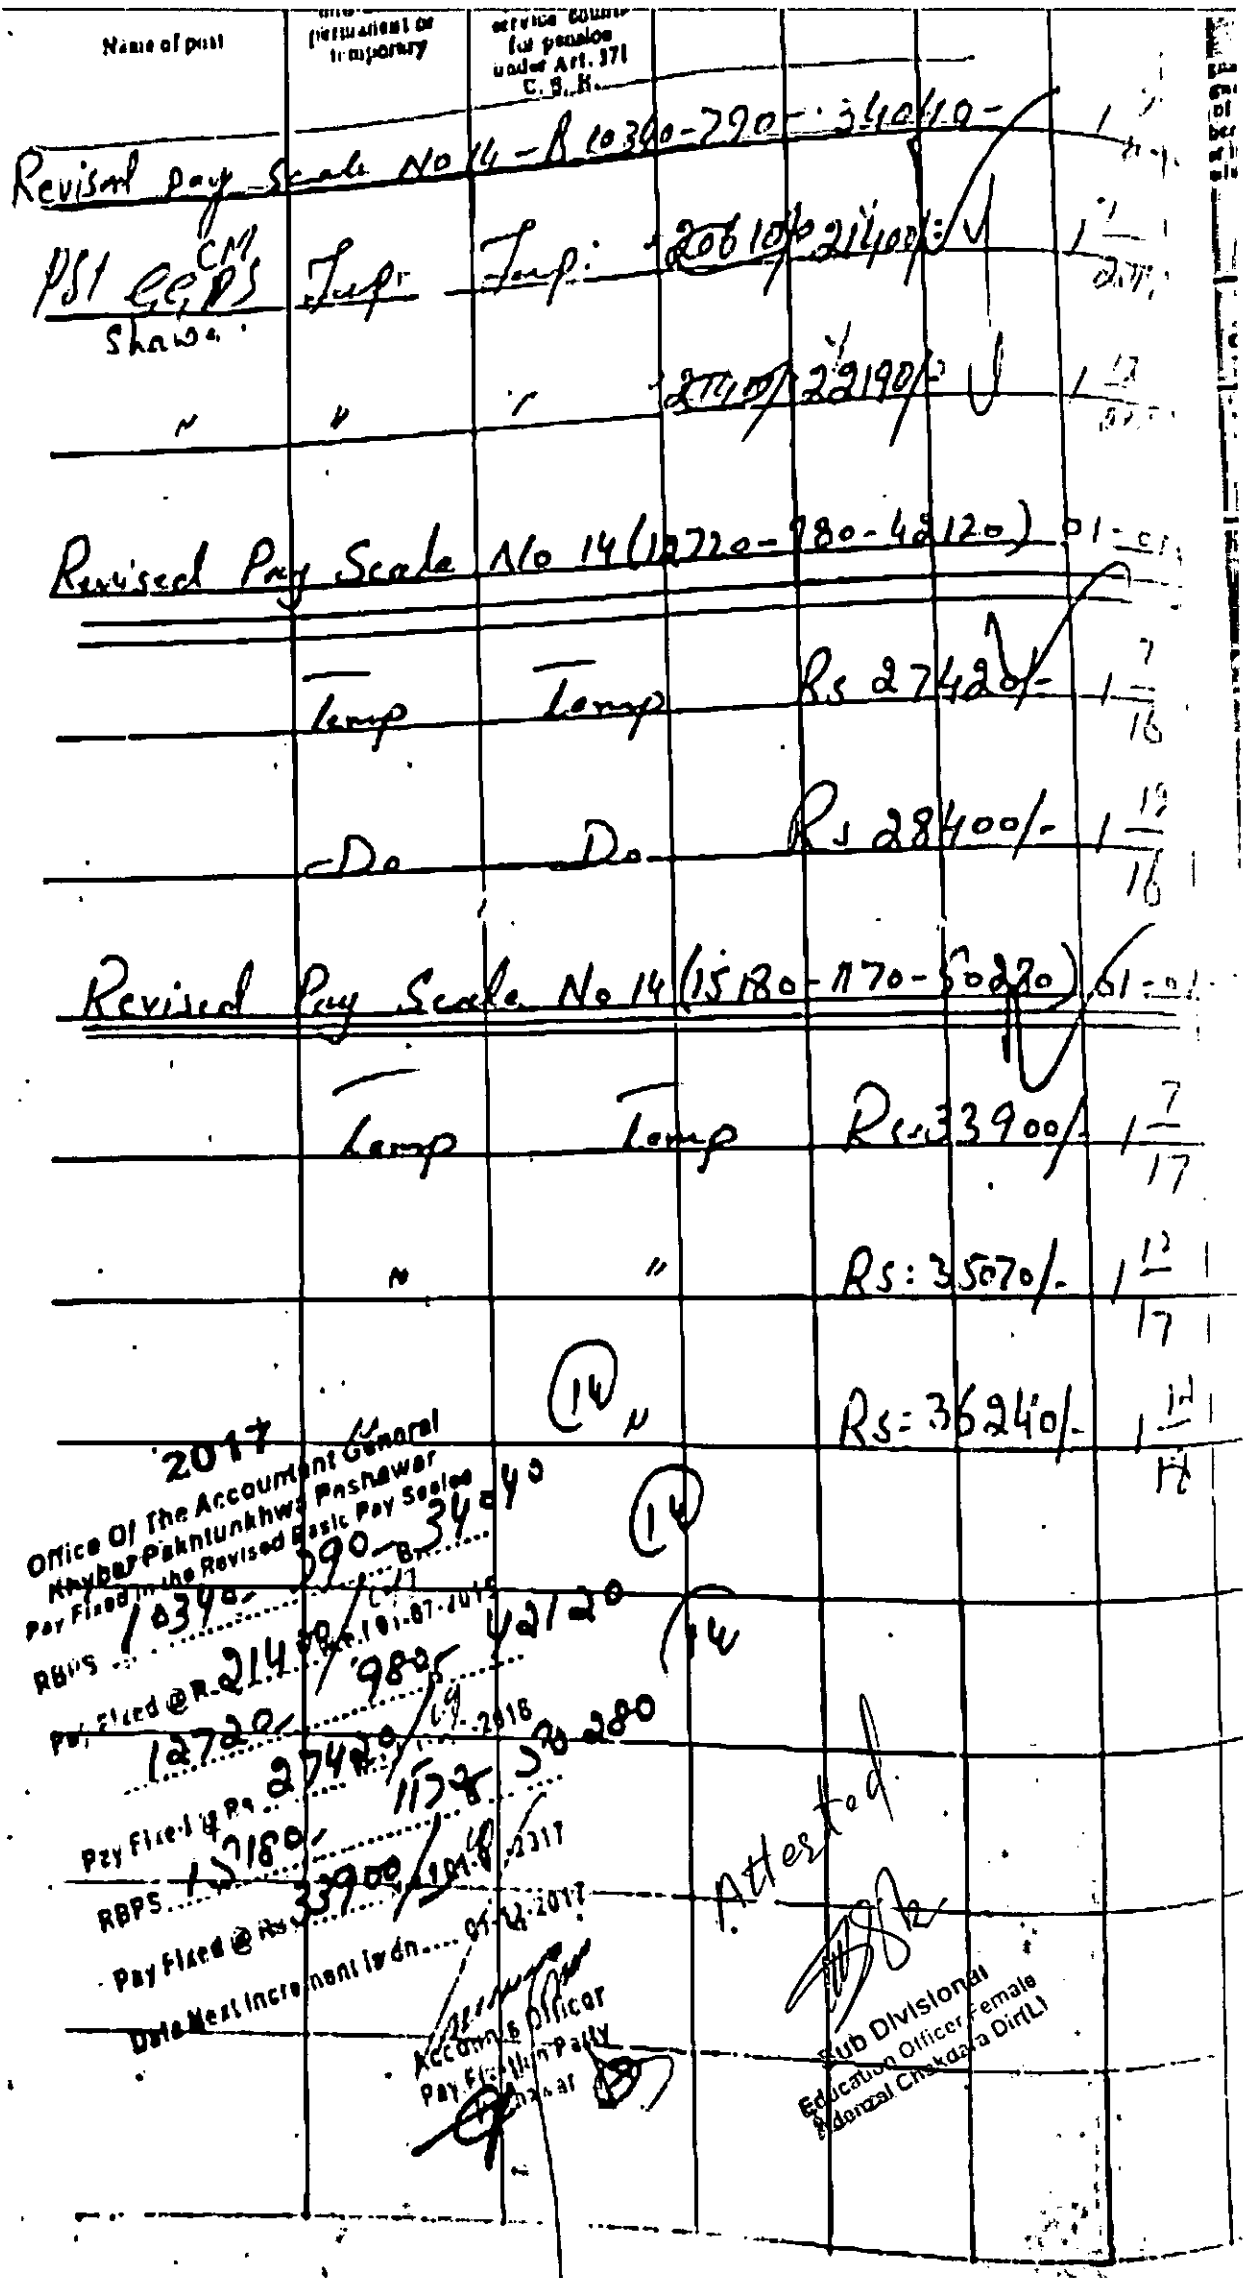 Name of post
permanent or
temporary
service counts
for pension
under Art. 371
C. S. R.
Revised pay scale No 14 - R 10340-790-34040-
PST CM
GGPS Temp: Temp: 20610/- 21400/-
Shawa.
" " " 21400/ 22190/-
Revised Pay Scale No 14 (12720-980-42120) 01-01
Temp Temp Rs 27420/- 1 7/16
-Do Do Rs 28400/- 1 12/16
Revised Pay Scale No 14 (15180-1170-50280) 01-01
Temp Temp Rs: 33900/- 1 7/17
" " Rs: 35070/- 1 12/17
14
" " Rs: 36240/- 1 12
2017
Office Of The Accountant General
Khyber Pakhtunkhwa Peshawar
Pay Fixed in the Revised Basic Pay Scales
14
RBPS 10340- 790- 34040
Pay Fixed @ R 21400/ 01-07-2015
14
12720- 980- 42120
Pay Fixed @ Rs 27420/
RBPS 15180- 1170- 50280
Pay Fixed @ Rs 33900/ 2017
Date Next Increment is dn.... 01-12-2017
Accounts Officer
Pay Fixation Party
Attested
Sub Divisional
Education Officer Female
Adenzai Chakdara Dir(L)